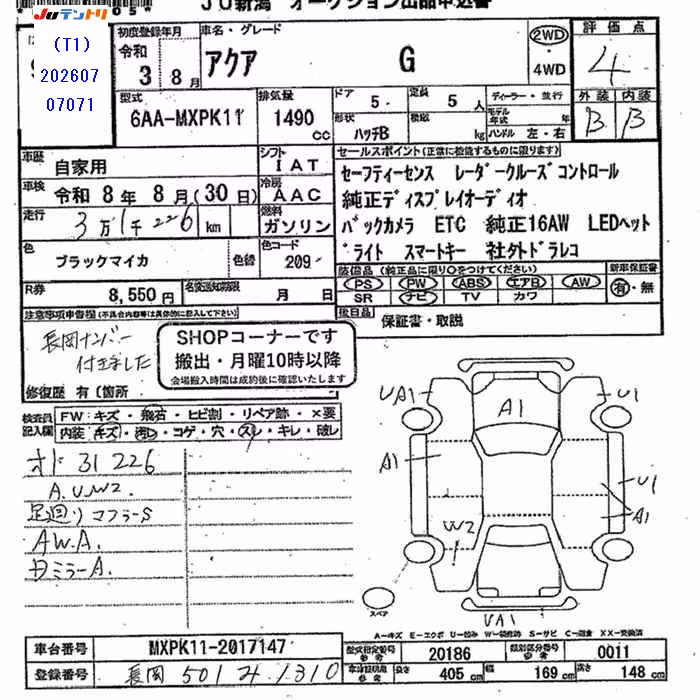 JU新潟 オークション出品申込書
Juテントリ
(T1)
202607
07071
初度登録年月
令和 3年 8月
車名・グレード
アクア G
2WD
・
4WD
評価点
4
外装 内装
B B
型式
6AA-MXPK11
排気量
1490 cc
ドア 5
定員 5人
形状 ハッチB
積載 kg
ディーラー・並行
モデル年式 年
ハンドル 左・右
車歴 自家用
シフト IAT
車検 令和 8年 8月(30日)
冷房 AAC
走行 3万1千226 km
燃料 ガソリン
色 ブラックマイカ 色替
色コード 209
R券 8,550円
名義変更期限 月 日
セールスポイント(正常に機能するものに限ります)
セーフティーセンス レーダークルーズコントロール
純正ディスプレイオーディオ
バックカメラ ETC 純正16AW LEDヘット
゛ライト スマートキー 社外ドラレコ
装備品(純正品に限り○をつけてください)
PS PW ABS エアB AW
SR ナビ TV カワ
新車保証書
有・無
後日品 保証書・取説
注意事項申告欄(不具合内容等は具体的に記入して下さい)
長岡ナンバー
付きました
SHOPコーナーです
搬出・月曜10時以降
会場搬入時間は成約後に確認いたします
修復歴 有(箇所
検査員記入欄
FW:キズ・飛石・ヒビ割・リペア跡・×要
内装:キズ・汚レ・コゲ・穴・スレ・キレ・破レ
オド 31226
A.U.W2
足廻リ マフラーS
AW.A.
Dミラー A.
UA1 A1 U1
A1 U1
A1
W2
スペア
UA1
A-キズ E-エクボ U-凹み W-補修跡 S-サビ C-腐食 XX-交換済
車台番号 MXPK11-2017147
登録番号 長岡 501 ル 1310
型式指定番号 20186
類別区分番号 0011
車体証明用 長さ 405 cm 幅 169 cm 高さ 148 cm